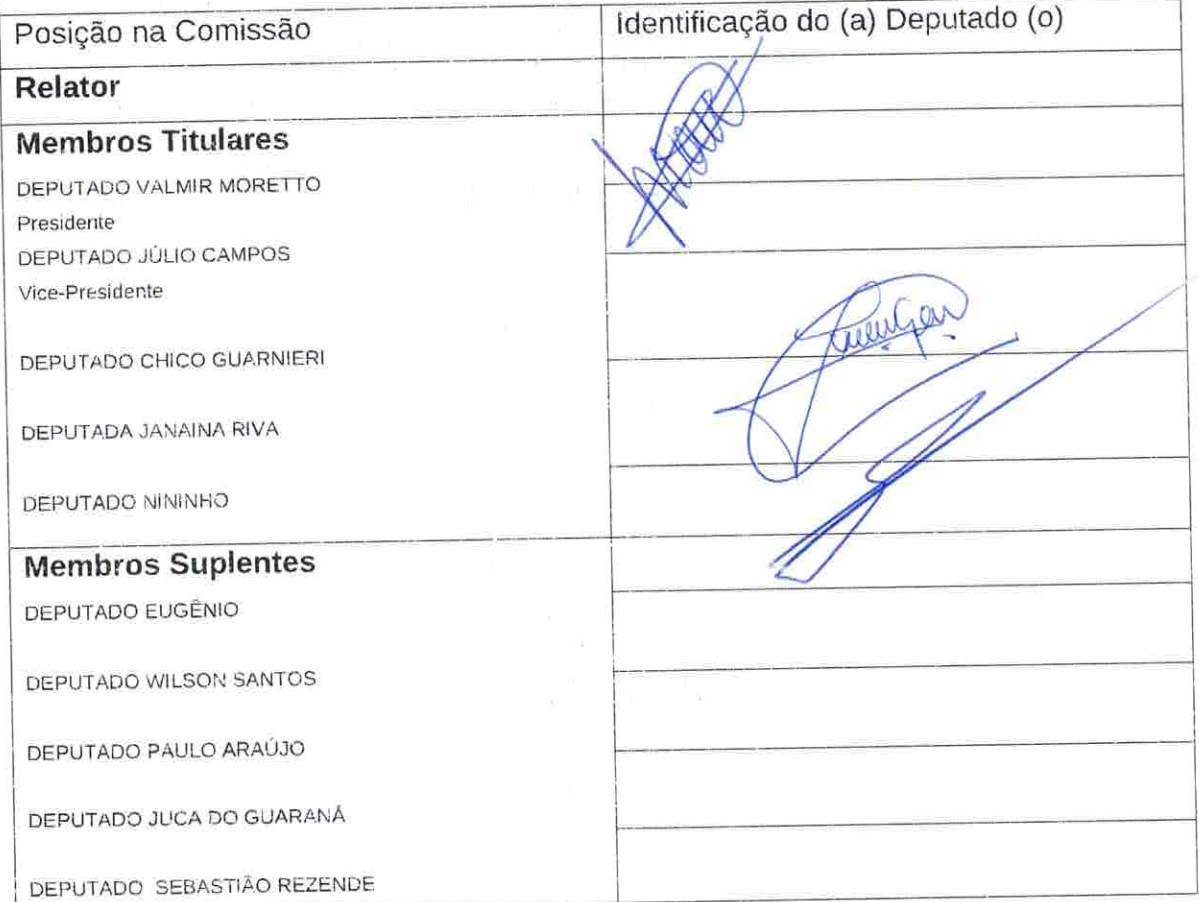 Posição na Comissão
Identificação do (a) Deputado (o)
Relator
Membros Titulares
DEPUTADO VALMIR MORETTO
Presidente
DEPUTADO JÚLIO CAMPOS
Vice-Presidente
DEPUTADO CHICO GUARNIERI
DEPUTADA JANAINA RIVA
DEPUTADO NININHO
Membros Suplentes
DEPUTADO EUGÊNIO
DEPUTADO WILSON SANTOS
DEPUTADO PAULO ARAÚJO
DEPUTADO JUCA DO GUARANÁ
DEPUTADO SEBASTIÃO REZENDE